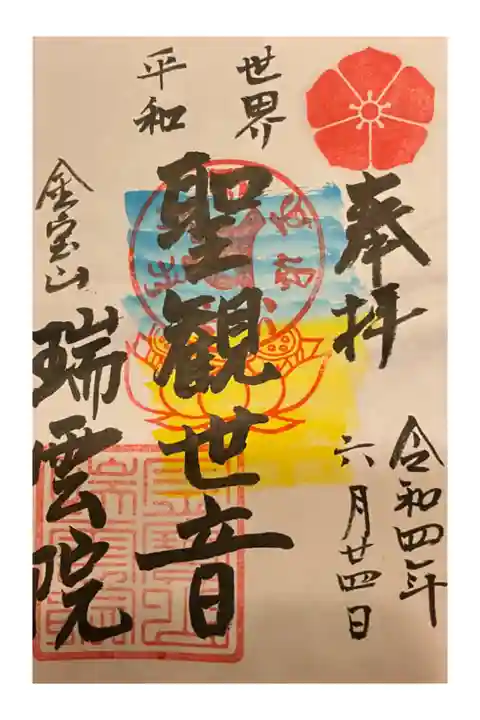 奉拝
令和四年
六月廿四日
世界
平和
聖観世音
金宝山
瑞雲院